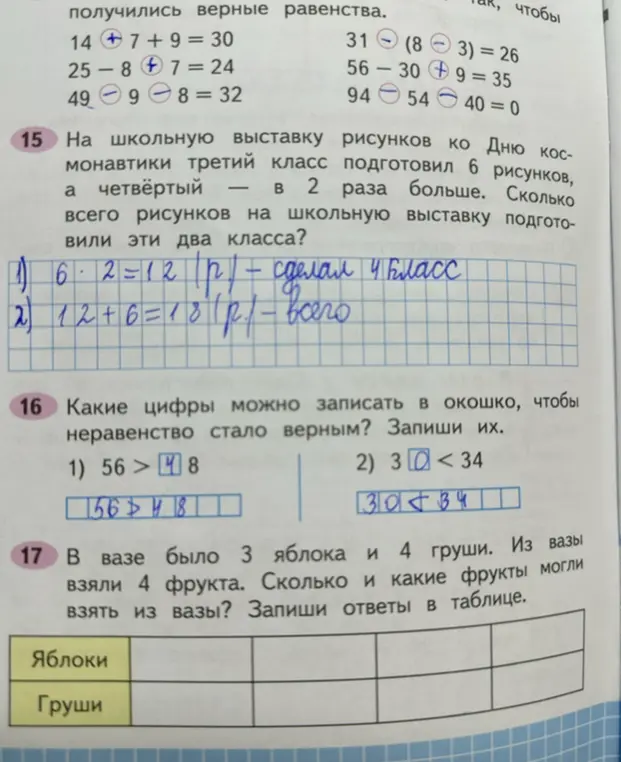 получились верные равенства.
так, чтобы
14 + 7 + 9 = 30
31 − (8 − 3) = 26
25 − 8 + 7 = 24
56 − 30 + 9 = 35
49 − 9 − 8 = 32
94 − 54 − 40 = 0
15 На школьную выставку рисунков ко Дню кос-
монавтики третий класс подготовил 6 рисунков,
а четвёртый — в 2 раза больше. Сколько
всего рисунков на школьную выставку подгото-
вили эти два класса?
1) 6 · 2 = 12 (р) – сделал 4 класс
2) 12 + 6 = 18 (р) – всего
16 Какие цифры можно записать в окошко, чтобы
неравенство стало верным? Запиши их.
1) 56 > 4 8
2) 3 0 < 34
56 > 48
30 < 34
17 В вазе было 3 яблока и 4 груши. Из вазы
взяли 4 фрукта. Сколько и какие фрукты могли
взять из вазы? Запиши ответы в таблице.
Яблоки
Груши